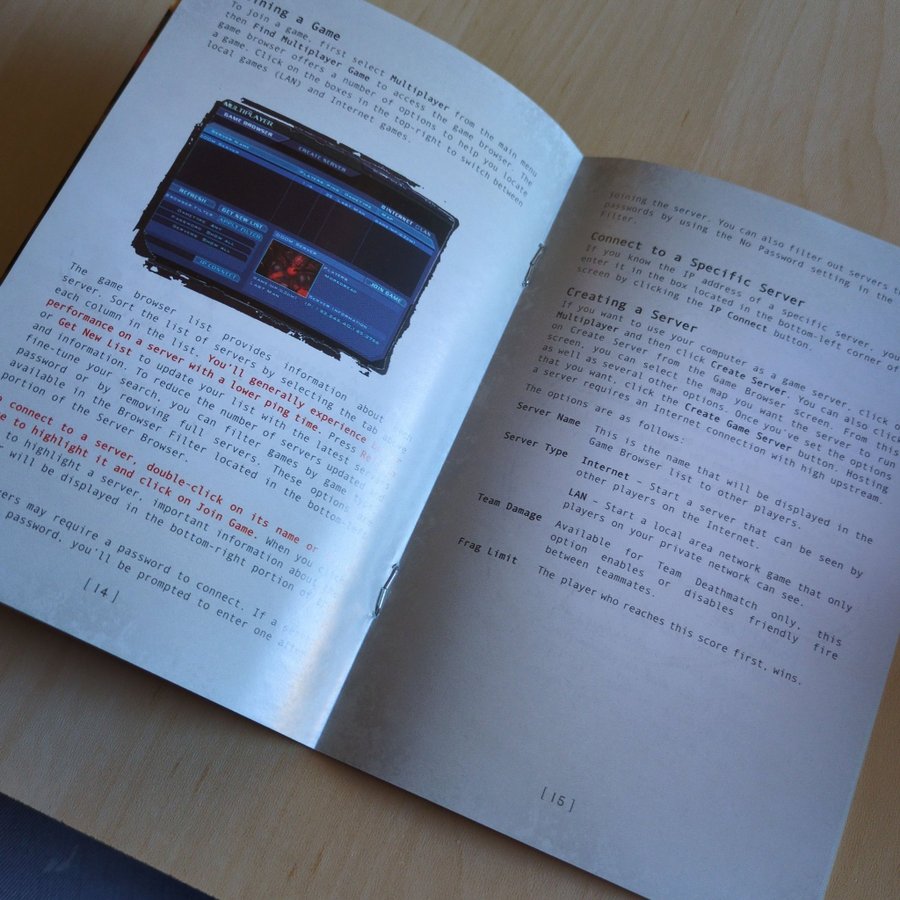 ining a Game
To join a game, first select Multiplayer from the main menu
then Find Multiplayer Game to access the game browser. The
game browser offers a number of options to help you locate
a game. Click on the boxes in the top-right to switch between
local games (LAN) and Internet games.
MULTIPLAYER
GAME BROWSER
CREATE SERVER
SERVER NAME
INTERNET LAN
REFRESH
GET NEW LIST
BROWSER FILTER
APPLY FILTER
IP CONNECT
DOOM SERVER
PLAYERS
JOIN GAME
SERVER INFORMATION
LAST MAN
The game browser list provides information about
server. Sort the list of servers by selecting the tab
each column in the list. You'll generally experience
performance on a server with a lower ping time. Press
or Get New List to update your list with the latest
information. To reduce the number of servers updated
and fine-tune your search, you can filter games by game
password or by removing full servers. These options
available in the Browser Filter located in the bottom-
portion of the Server Browser.
connect to a server, double-click on its name or
to highlight it and click on Join Game. When you
to highlight a server, important information about
will be displayed in the bottom-right portion of
may require a password to connect. If a
password, you'll be prompted to enter one
[ 14 ]
joining the server. You can also filter out servers
passwords by using the No Password setting in the
Filter.
Connect to a Specific Server
If you know the IP address of a specific server, you
enter it in the box located in the bottom-left corner of
screen by clicking the IP Connect button.
Creating a Server
If you want to use your computer as a game server, click
Multiplayer and then click Create Server. You can also click
on Create Server from the Game Browser screen. From this
screen, you can select the map you want the server to run
as well as several other options. Once you've set the options
that you want, click the Create Game Server button. Hosting
a server requires an Internet connection with high upstream
The options are as follows:
Server Name This is the name that will be displayed in the
Game Browser list to other players.
Server Type Internet – Start a server that can be seen by
other players on the Internet.
LAN – Start a local area network game that only
players on your private network can see.
Team Damage Available for Team Deathmatch only, this
option enables or disables friendly fire
between teammates.
Frag Limit The player who reaches this score first, wins.
[ 15 ]